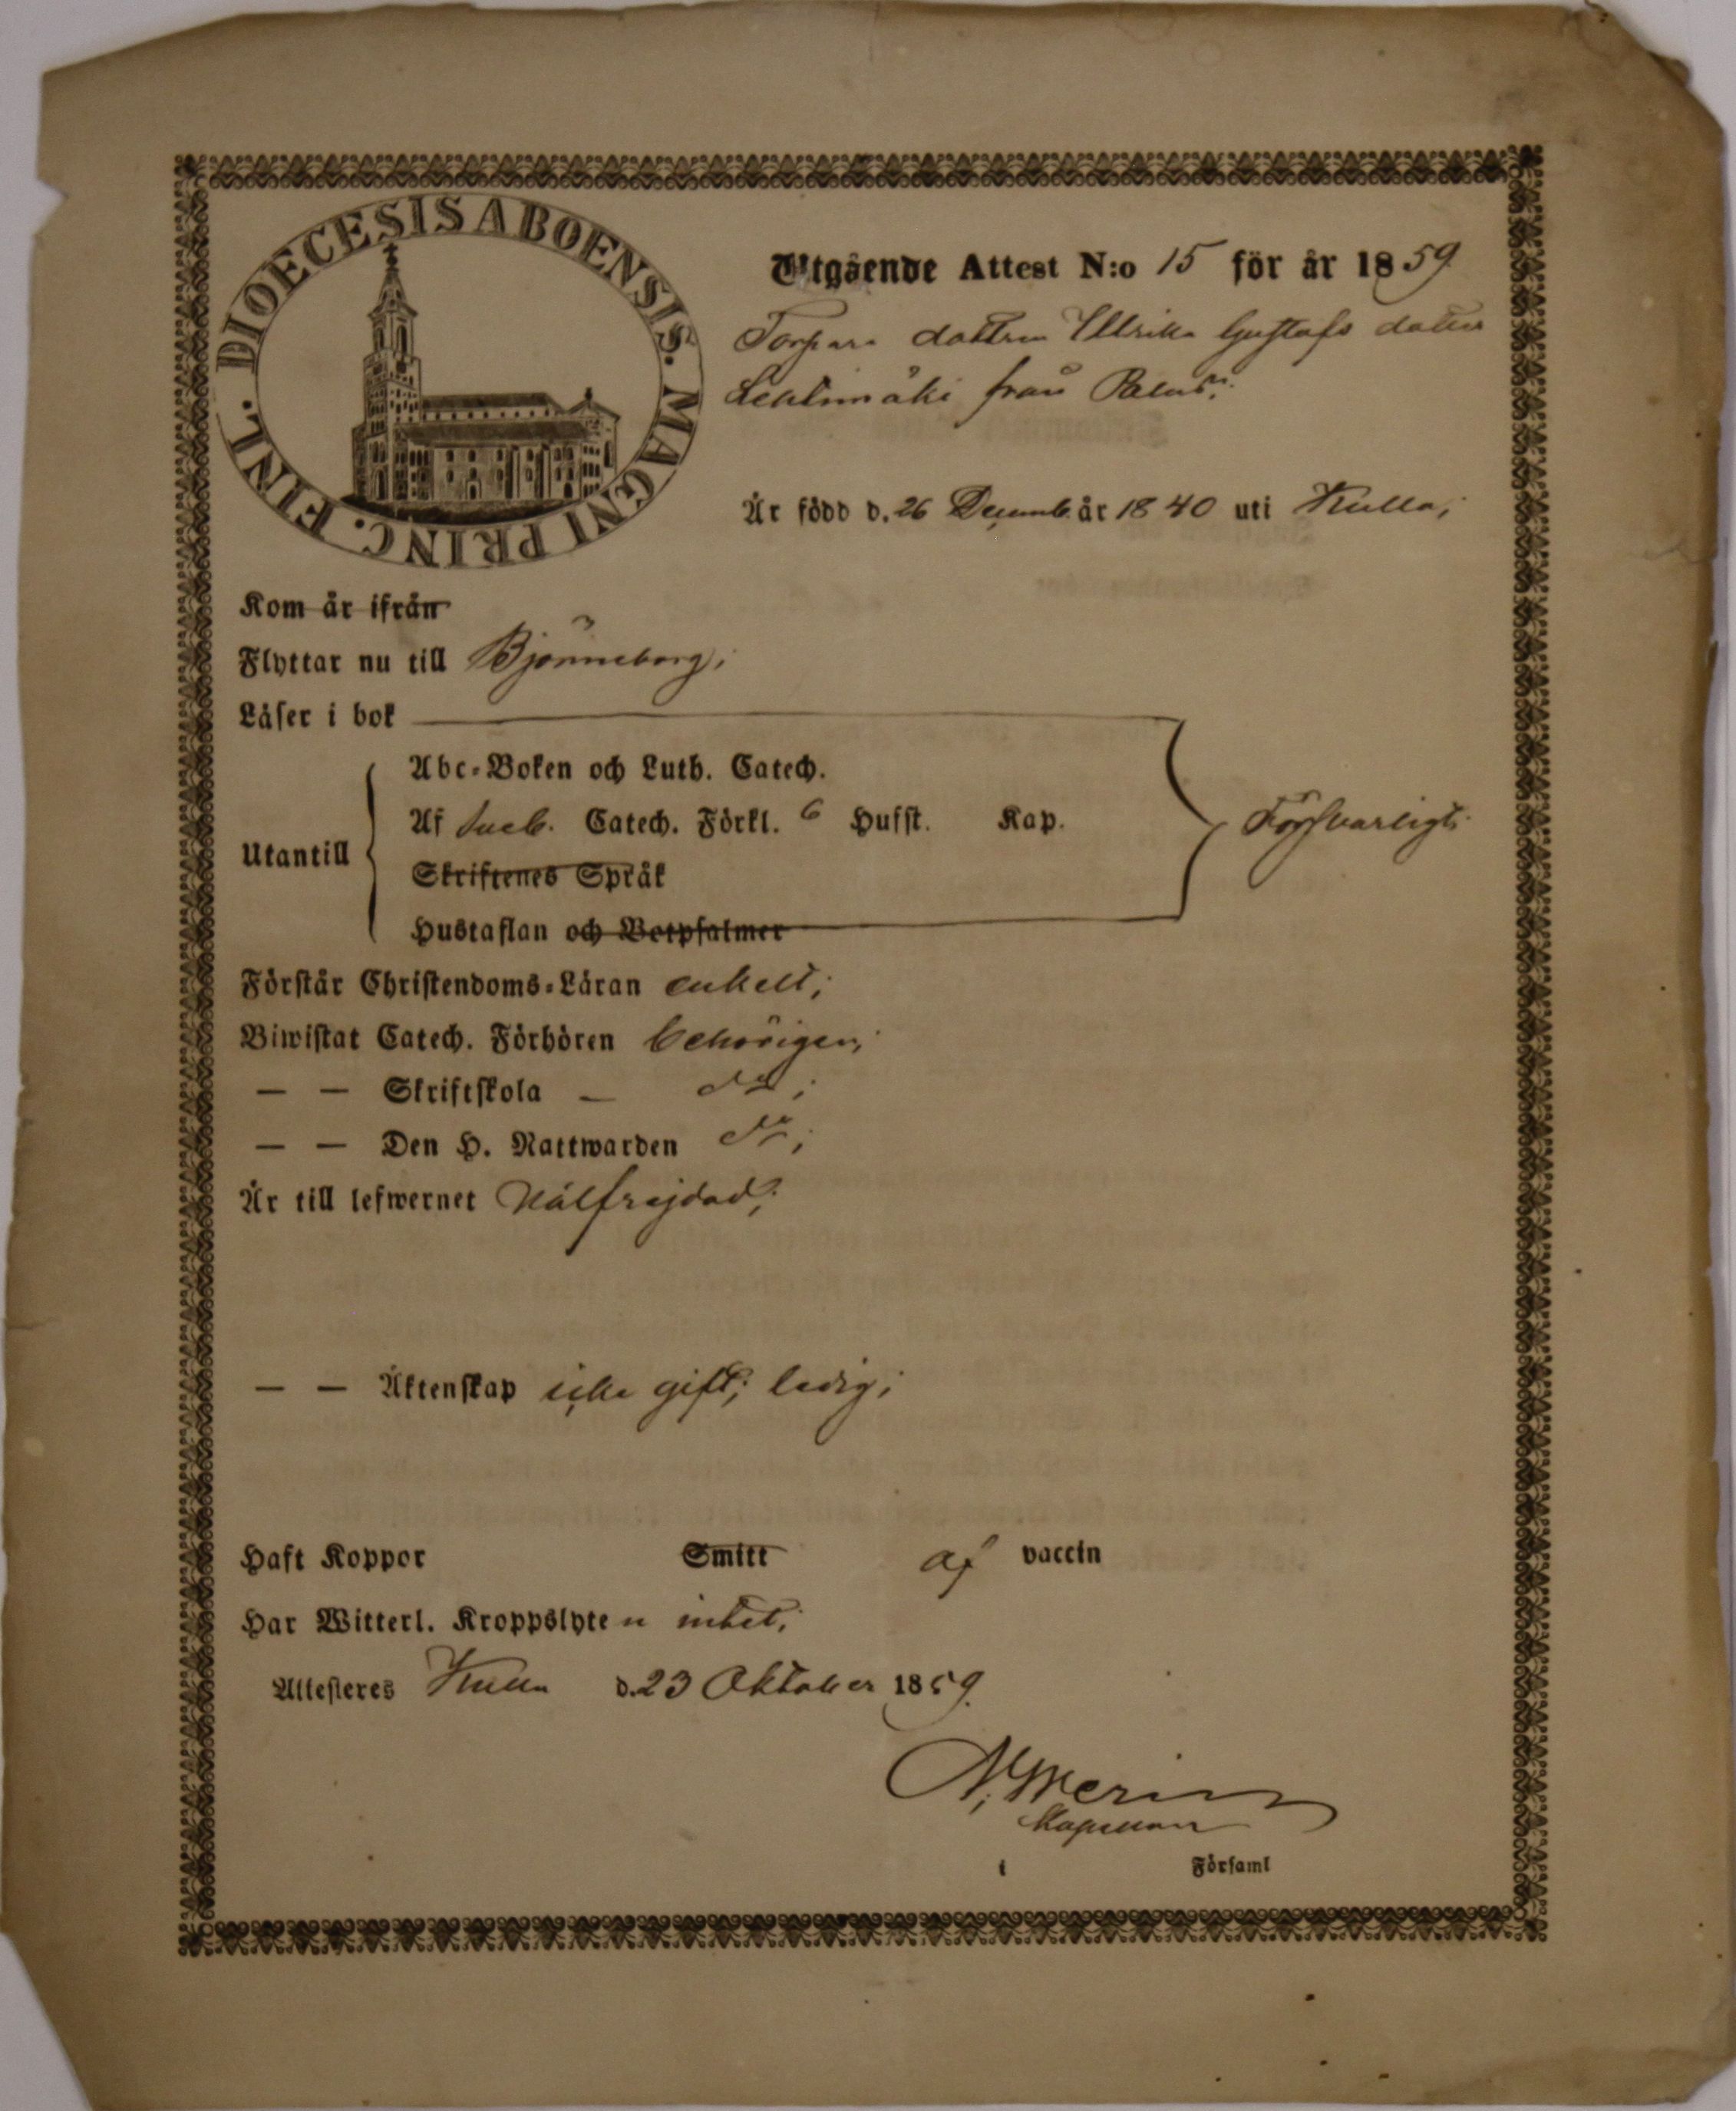 DIOECESIS ABOENSIS. MAGNI PRINC. FINL.
Utgående Attest N:o 15 för år 1859
Torpare dottren Ullrika Gustafs dotter
Lehtimäki från Palus;
Är född d. 26 Decemb. år 1840 uti Kulla;
Kom år ifrån
Flyttar nu till Björneborg;
Läser i bok
Abc-Boken och Luth. Catech.
Af Sveb. Catech. Förkl. 6 Hufst. Kap.
Försvarligt
Utantill
Skriftenes Språk
Hustaflan och Botpsalmer
Förstår Christendoms-Läran enkelt;
Biwistat Catech. Förhören behörigen;
— — Skriftskola — do;
— — Den H. Nattwarden do;
Är till lefwernet välfrejdad;
— — Äktenskap icke gift; ledig;
Haft Koppor Smitt af vaccin
Har Witterl. Kroppslyten intet;
Attesteres Kulla d. 23 Oktober 1859.
Kapellan
i Församl